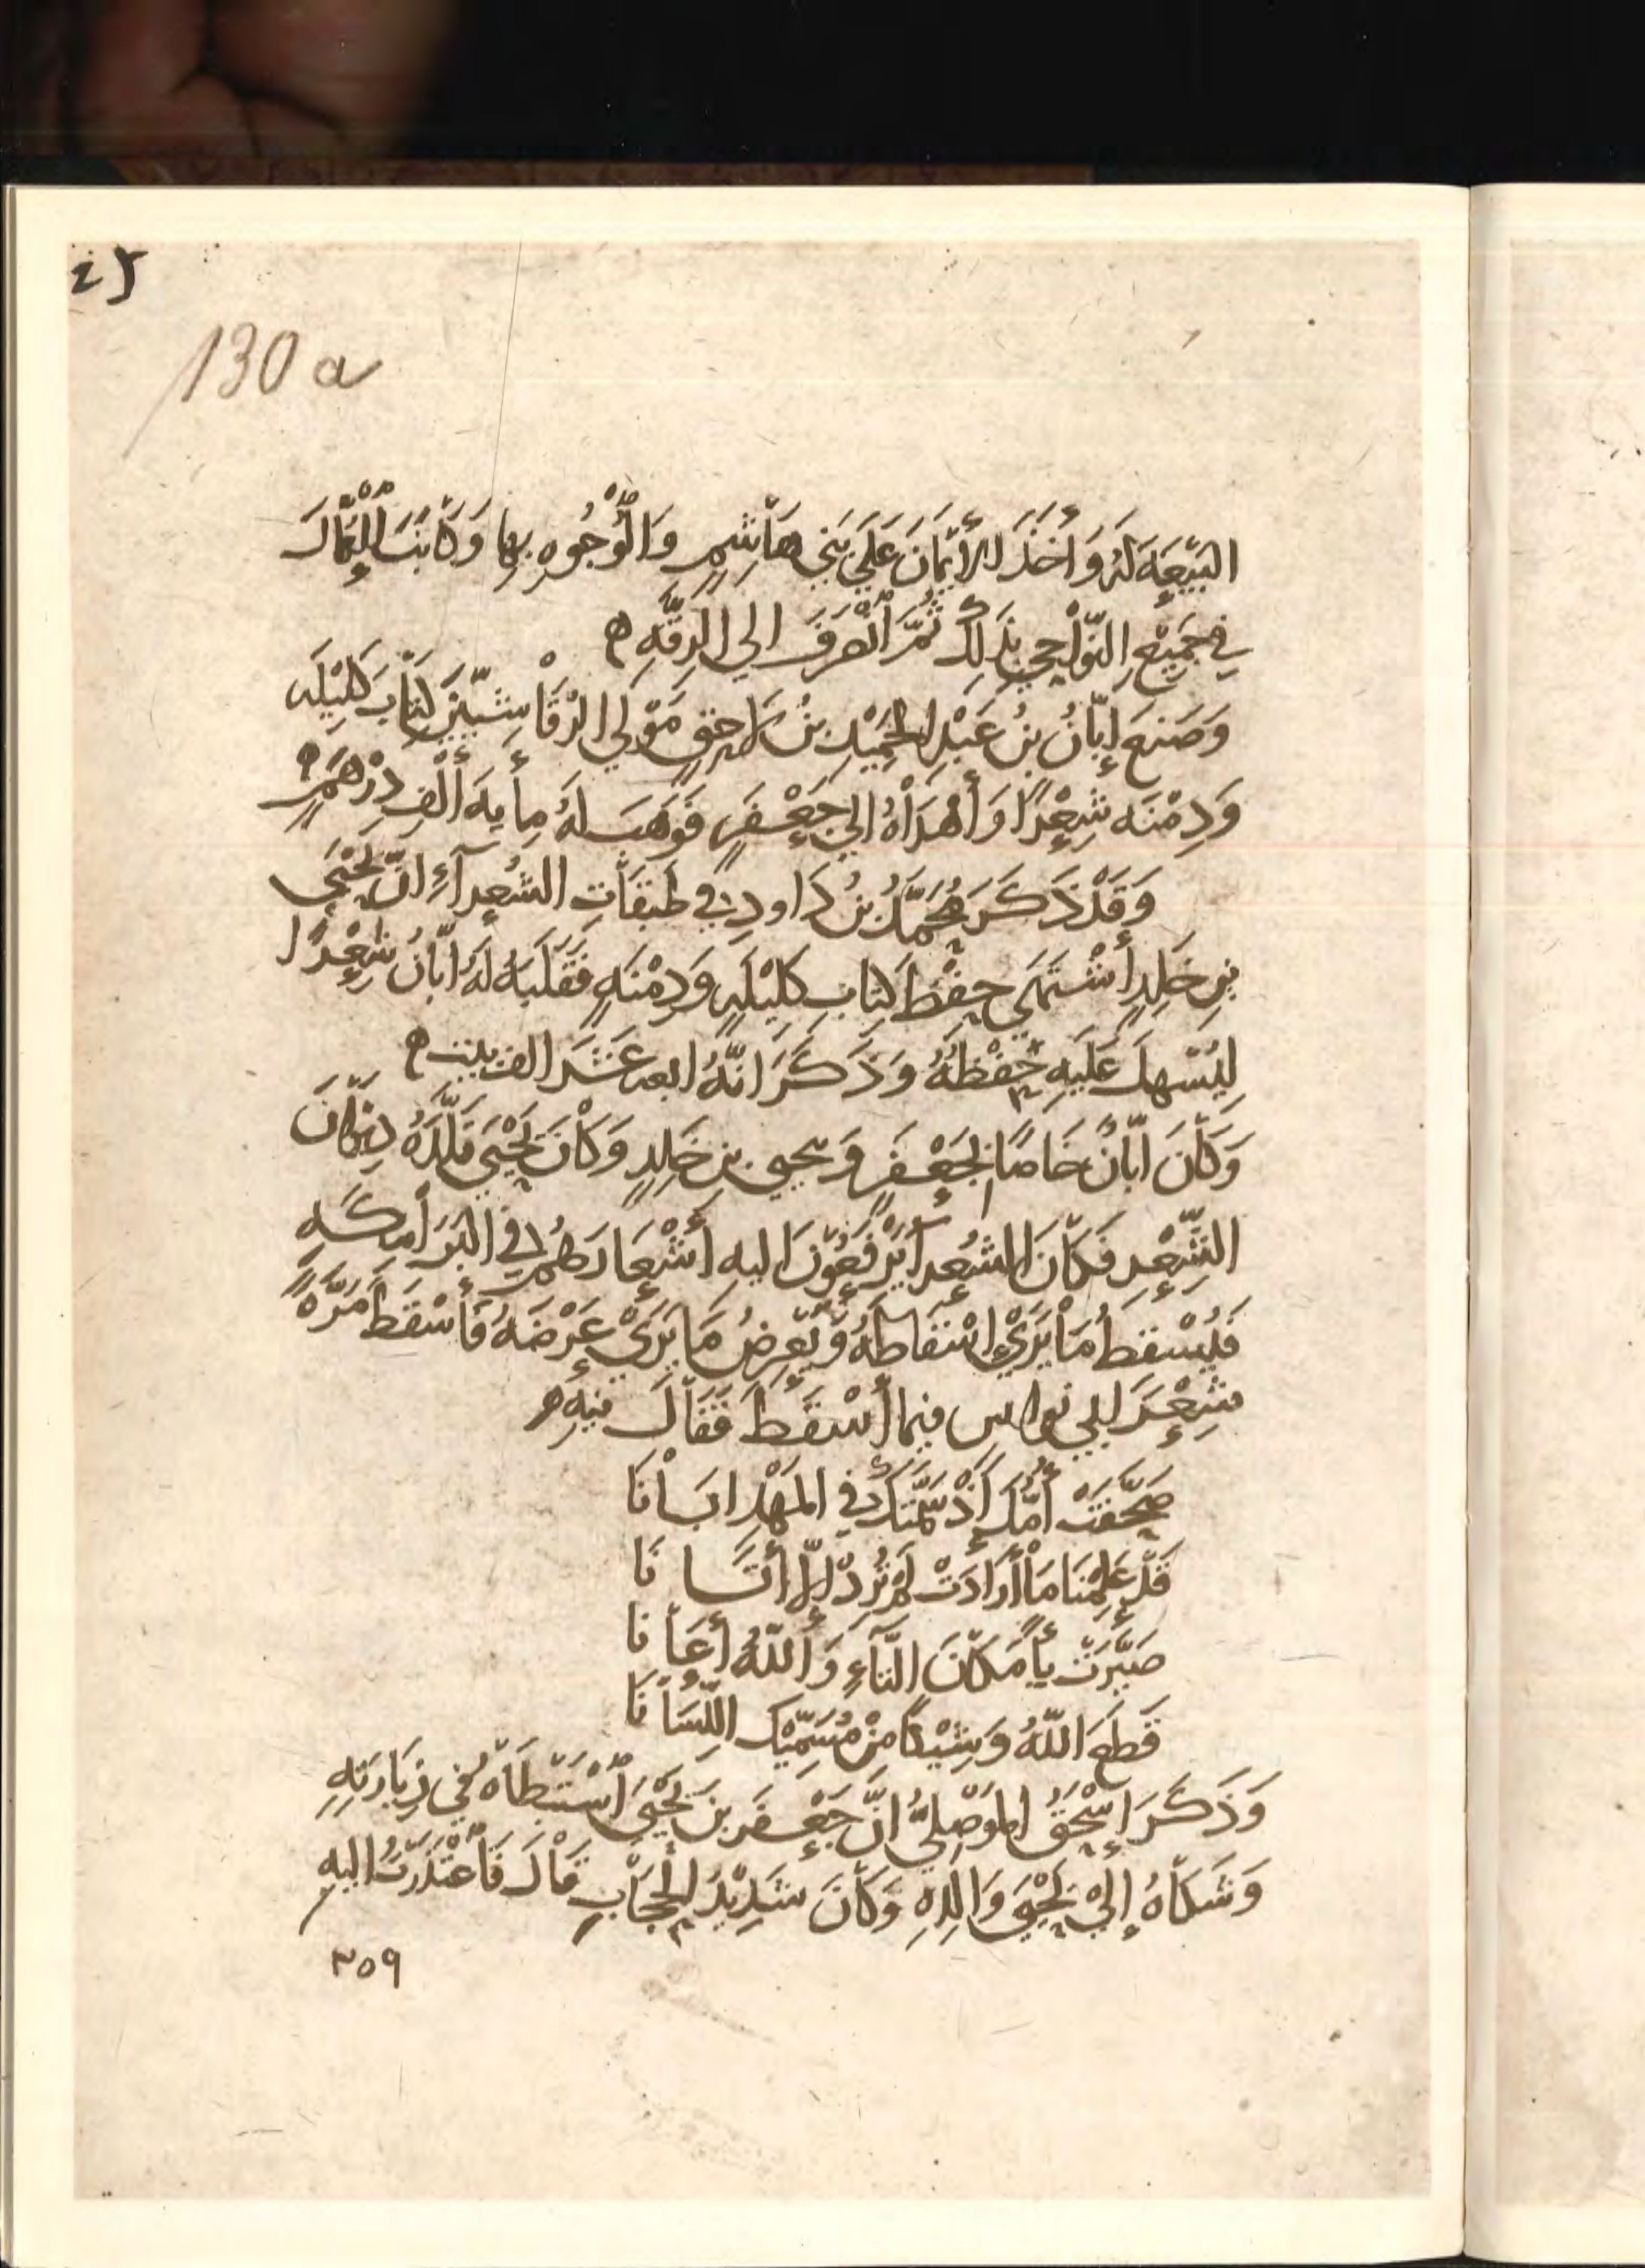 130 a
البَيْعَةَ لَهُ وَأَخَذَ الأَيْمَانَ عَلَي بَنِي هَاشِمٍ وَالْوُجُوهِ بِهَا وَكَاتَبَ الْعُمَّالَ
فِي جَمِيْعِ النَّوَاحِي بِذَلِكَ ثُمَّ انْصَرَفَ الي الرِقَّهِ ه
وَصَنعَ إبَّانُ بنُ عَبْدِ الحَمِيْدِ بنُ لاحِقٍ مَوْلَي الرَّقَاشِيّيْنَ كِتَابَ كَلِيْلَه
وَدِمْنَه شِعْرًا وَأَهْدَاهُ الي جَعْفَرٍ فَوَهَبَ لَهُ مِأيهَ أَلْفِ دِرْهَمٍ ه
وَقَدْ ذَكَرَ مُحَمَّدُ بنُ دَاودٍ فِي طَبَقَاتِ الشُعرآءِ انَّ يَحْيَي
بنِ خَلِدٍ أشْتَهَي حِفْظَ كِتَابِ كَلِيْلَهٍ وَدِمْنَهٍ فَقَلَبَهُ لَهُ ابَّانُ شِعْرًا
لِيُسْهِلَ عَلَيهِ حِفْظَهُ وَذَكَرَ انَّهُ اربعه عَشَرَ الف بيت ه
وَكَانَ ابَّانُ خَاصًا بِجَعْفَرٍ وَيحيي بنِ خَلِدٍ وَكَانَ يَحْيَي قَلَّدَهُ دِيْوَانَ
الشِّعْرِ فَكَانَ الشُعرآ يَرْفَعُوْنَ اليهِ أَشْعَارَهُم فِي البَرَامِكَهِ
فَيُسْقِطُ مَا يَرَي اسْقَاطَهُ وَيَعْرِضُ مَا يَرَي عَرْضَهُ فَأَسْقَطَ مَرَّةً
شِعْرَ ابي نواس فيما أَسْقَطَ فَقَالَ فيهِ ه
صَحَّفَتْ أُمُّكَ إذْ سَمَّتكَ فِي المَهْدِ ابَانَا
قَدْ عَلِمْنَا مَا أَرَادَتْ لَمْ تُرِدْ إلَّا أَتَانَا
صَيَّرَتْ يأ مَكَانَ التَّاءِ وَاللَّهُ أَعَانَا
قَطَعَ اللَّهُ وَشِيْكًا مِنْ مُسَمِّيْكَ اللِّسَانَا
وَذَكَرَ إسْحَقُ المَوْصِلِيُّ انَّ جَعْفَرَ بنَ يَحْيَي اسْتَبْطَاهُ فِي زِيَارَتِهِ
وَشَكَاهُ إلَيْ يَحْيَي وَالِدِهِ وَكَانَ شَدِيْدُ الحِجَابِ قَالَ فَاعْتَذَرْتُ اليهِ
٣٥٩